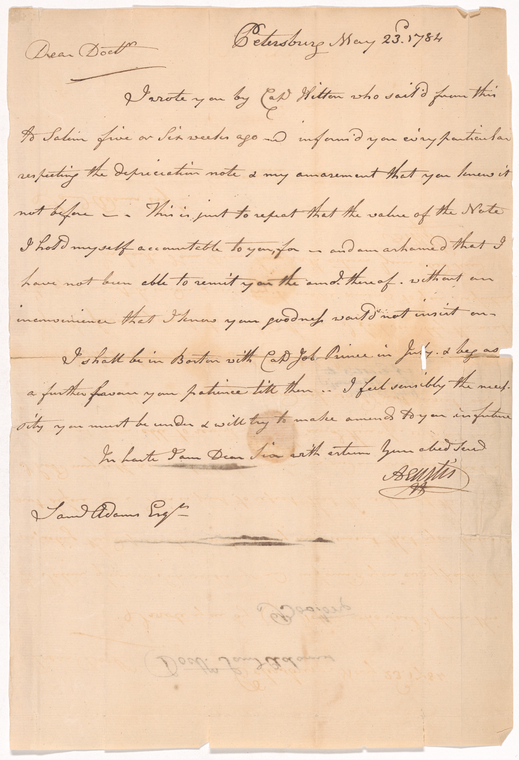 Petersburg May 23d. 1784
Dear Doctr
I wrote you by Capt Hilton who sail'd from this
to Salem five or six weeks ago & inform'd you every particular
respecting the depreciation note & my amazement that you knew it
not before — This is just to repeat that the value of the Note
I hold myself accountable to you for — and am ashamed that I
have not been able to remit you the amot. thereof. without an
inconvenience that I know your goodness would not insist on—
I shall be in Boston with Capt Job Prince in July. & beg as
a further favour your patience till then .. I feel sensibly the neces-
sity you must be under & will try to make amends to you in future
In haste I am Dear Sir with esteem Your obed Serv
A Curtis
Saml Adams Esqr
Boston
Doctr Saml Adams